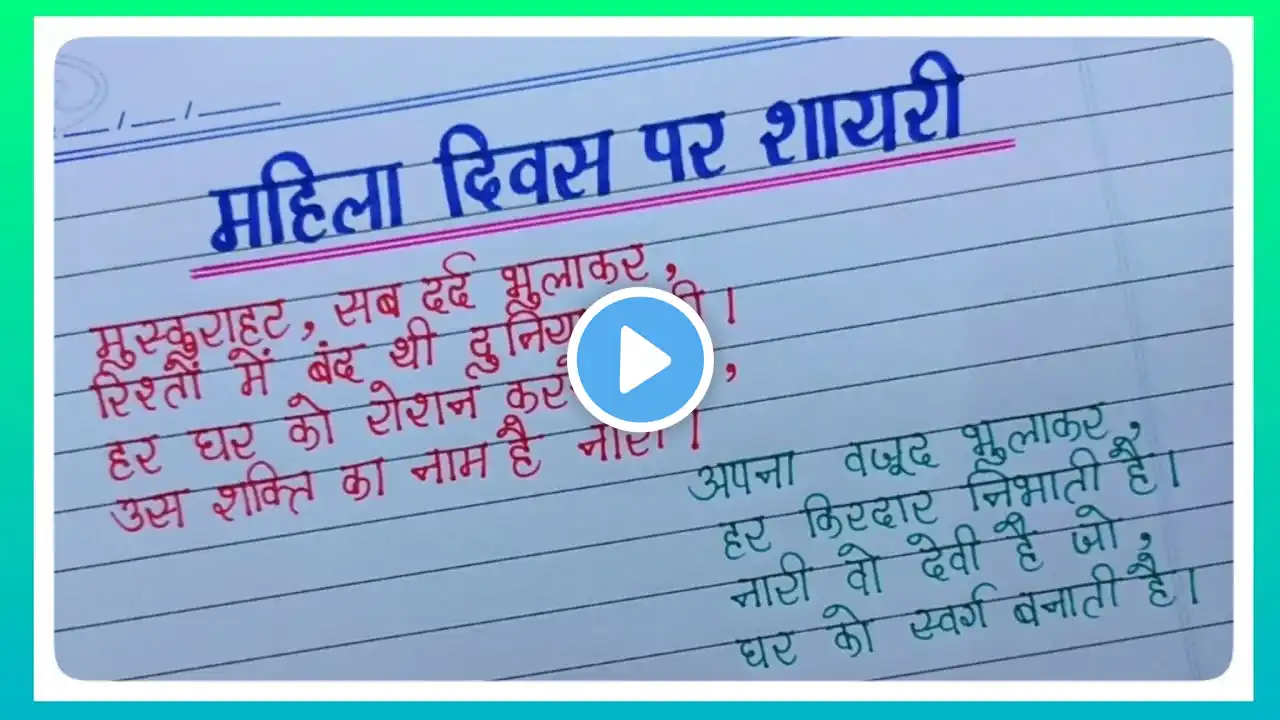 महिला दिवस पर शायरी
मुस्कुराहट, सब दर्द भुलाकर,
रिश्तों में बंद थी ।
हर घर को रोशन ,
उस शक्ति का नाम है नारी ।
अपना वजूद भुलाकर,
हर किरदार निभाती है।
नारी वो देवी है जो,
घर को स्वर्ग बनाती है।